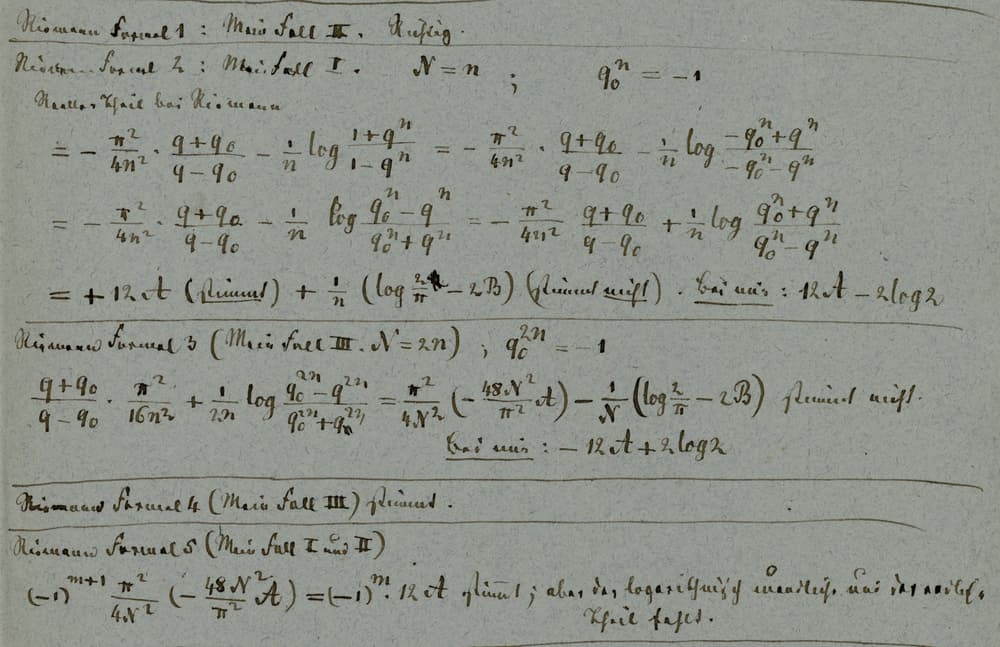 Riemann Formel 1 : Mein Fall II. Richtig.
Riemann Formel 2 : Mein Fall I. N = n ; q₀ⁿ = −1
Reeller Theil bei Riemann
= − π²/4n² · (q+q₀)/(q−q₀) − 1/n log (1+qⁿ)/(1−qⁿ) = − π²/4n² · (q+q₀)/(q−q₀) − 1/n log (−q₀ⁿ+qⁿ)/(−q₀ⁿ−qⁿ)
= − π²/4n² · (q+q₀)/(q−q₀) − 1/n log (q₀ⁿ−qⁿ)/(q₀ⁿ+qⁿ) = − π²/4n² (q+q₀)/(q−q₀) + 1/n log (q₀ⁿ+qⁿ)/(q₀ⁿ−qⁿ)
= + 12 A (stimmt) + 1/n (log 2/π − 2B) (stimmt nicht). Bei mir : 12A − 2log2
Riemann Formel 3 (Mein Fall III. N = 2n) ; q₀²ⁿ = −1
(q+q₀)/(q−q₀) · π²/16n² + 1/2n log (q₀²ⁿ−q²ⁿ)/(q₀²ⁿ+q²ⁿ) = π²/4N² (− 48N²/π² A) − 1/N (log 2/π − 2B) stimmt nicht.
Bei mir : − 12 A + 2 log 2
Riemann Formel 4 (Mein Fall III) stimmt.
Riemann Formel 5 (Mein Fall I und II)
(−1)ᵐ⁺¹ π²/4N² (− 48N²/π² A) = (−1)ᵐ · 12 A stimmt ; aber der logarithmisch unendliche und der endliche
Theil fehlt.